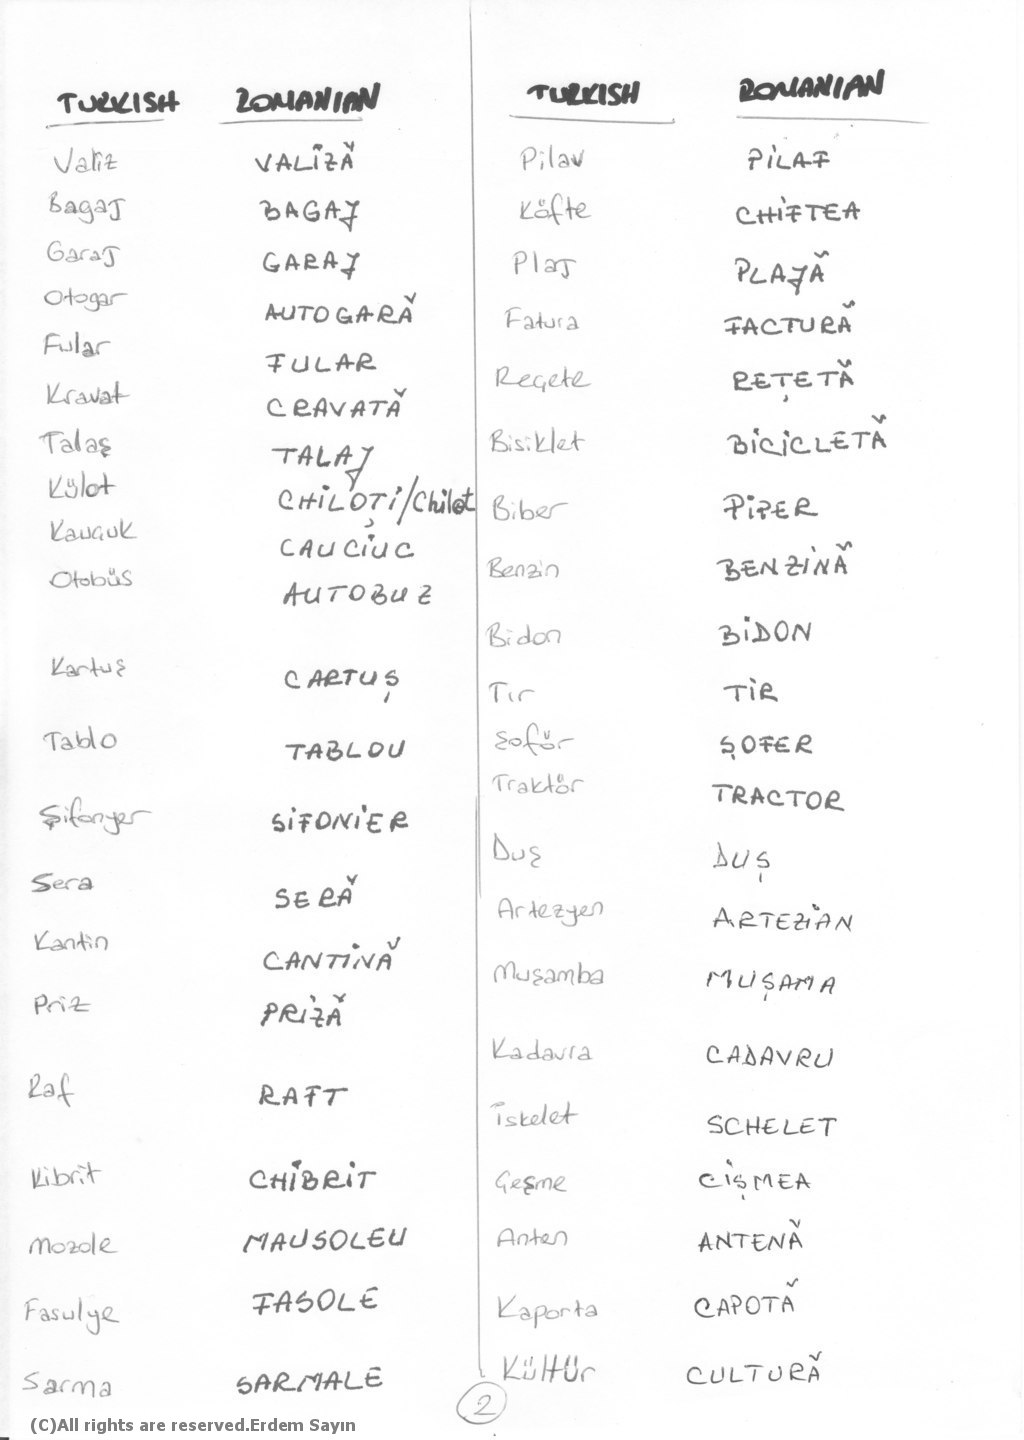 TURKISH ROMANIAN
Valiz VALİZĂ
Bagaj BAGAJ
Garaj GARAJ
Otogar AUTOGARĂ
Fular FULAR
Kravat CRAVATĂ
Talaş TALAJ
Külot CHiLOŢi/Chilot
Kauçuk CAUCiUC
Otobüs AUTOBUZ
Kartuş CARTUŞ
Tablo TABLOU
Şifonyer SiFONiER
Sera SERĂ
Kantin CANTiNĂ
Priz PRiZĂ
Raf RAFT
Kibrit CHiBRiT
Mozole MAUSOLEU
Fasulye FASOLE
Sarma SARMALE
TURKISH ROMANIAN
Pilav PiLAF
Köfte CHiFTEA
Plaj PLAJĂ
Fatura FACTURĂ
Reçete REŢETĂ
Bisiklet BiCiCLETĂ
Biber PiPER
Benzin BENZiNĂ
Bidon BiDON
Tır TiR
Şoför ŞOFER
Traktör TRACTOR
Duş DUŞ
Artezyen ARTEZiAN
Muşamba MUŞAMA
Kadavra CADAVRU
İskelet SCHELET
Çeşme CiŞMEA
Anten ANTENĂ
Kaporta CAPOTĂ
Kültür CULTURĂ
2
(C)All rights are reserved.Erdem Sayın